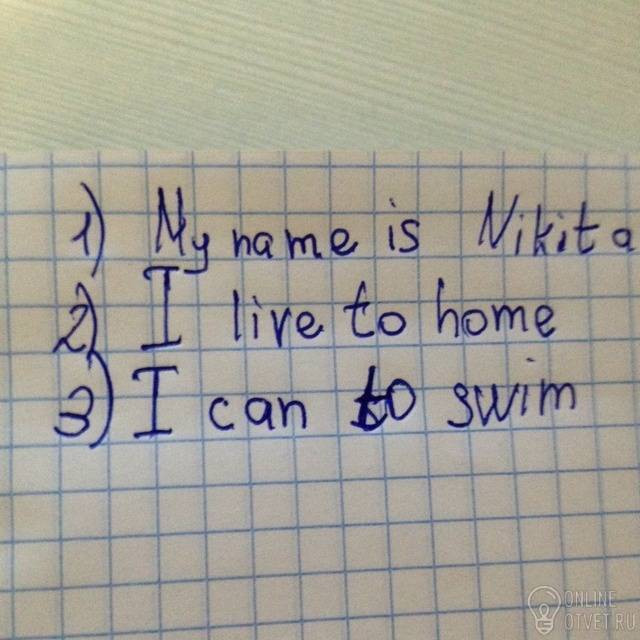 1) My name is Nikita
2) I live to home
3) I can to swim
ONLINE
OTVET.RU